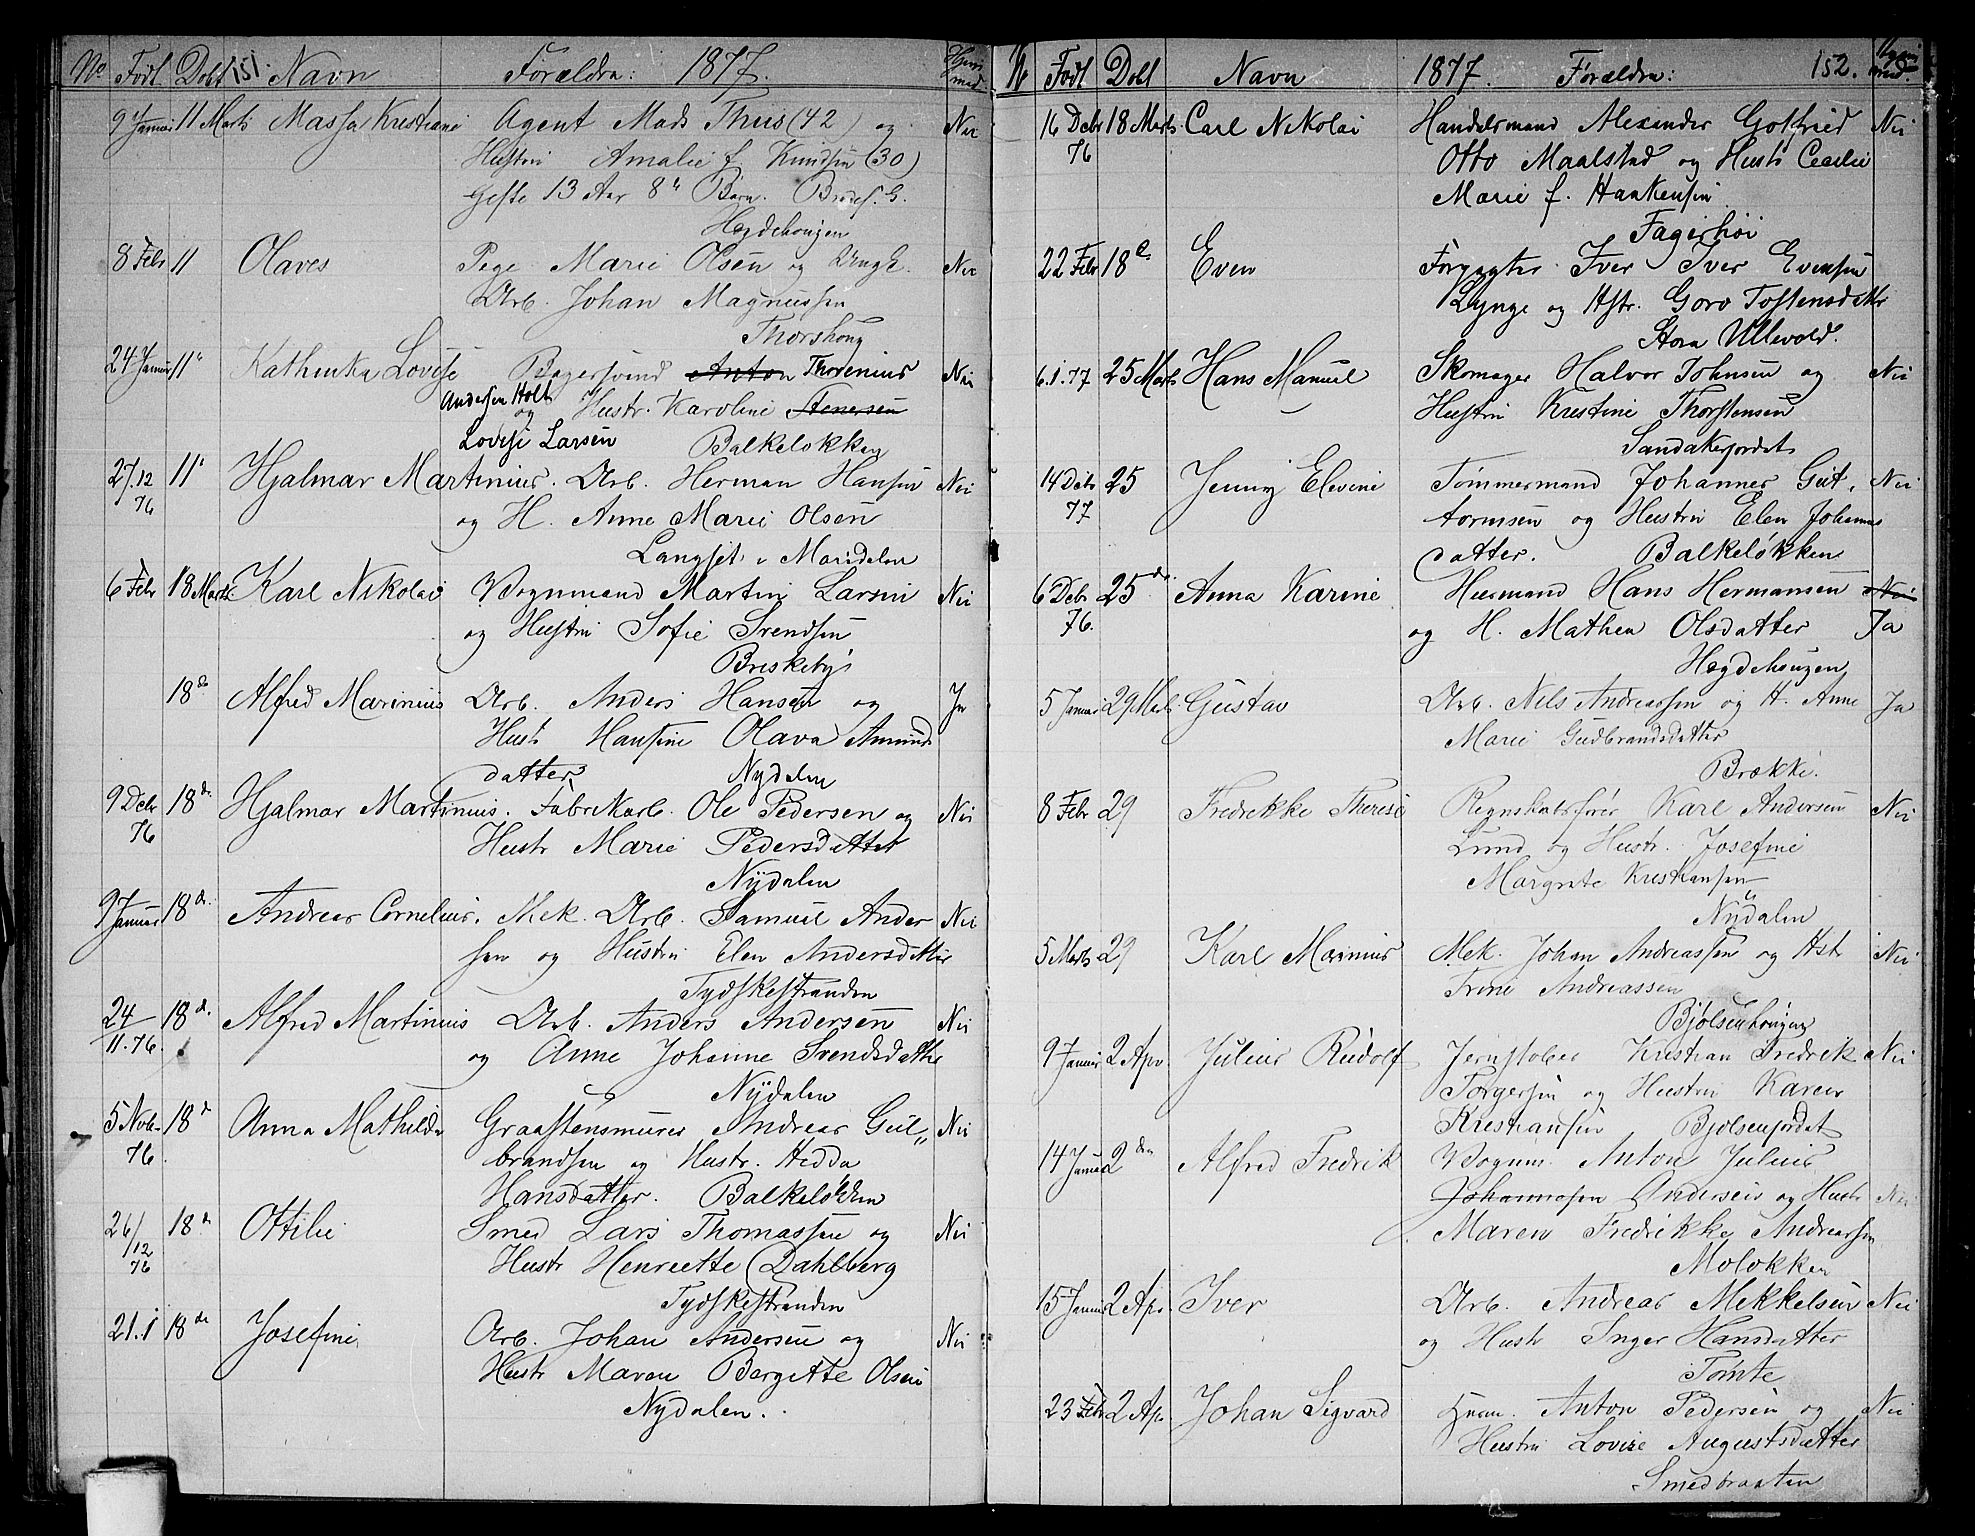 No Født Døbt 151. Navn Forældre: 1877. Hjem med
9 Januar 11 Marts Massa Kristiane Agent Mads Thiis (42) og Nei
Hustru Amalie f. Knudsen (30)
Gifte 13 Aar 8de Barn.
Hegdehougen
8 Febr 11 Olaves Pige Marie Olsen og Ungk. Nei
Arb. Johan Magnussen
Thorshoug
24 Januar 11 Kathinka Lovise Bagersvend Anton Thorenius Nei
Andersen Holt og Hustr. Karoline Stenersen
Lovise Larsen Balkeløkken
27/12 76 11 Hjalmar Martinius. Arb. Herman Hansen Nei
og H. Anne Marie Olsen
Langset i Maridalen
6 Febr 18 Marts Karl Nikolai Vognmand Martin Larsen Nei
og Hustru Sofie Svendsen
Briskeby
18 do Alfred Marinius Arb. Anders Hansen og Ja
Hust. Hansine Olava Amunds
datter Nydalen
9 Debr 76 18 do Hjalmar Martinius. Fabrikarb. Ole Pedersen og Nei
Hustr Marie Pedersdatter
Nydalen
9 Januar 18 d. Andreas Cornelius. Mek. Arb. Samuel Ander Nei
sen og Hustru Elen Andersdatter
Tydskestranden
24/11.76 18 d. Alfred Martinius Arb. Anders Andersen Nei
og Anne Johanne Svendsdatter
Nydalen
5 Nvbr 76 18 d Anna Mathilde Graastensmurer Andreas Gul„ Nei
brandsen og Hustr. Hedda
Hansdatter. Balkeløkken
26/12 76 18 d Ottilie Smed Lars Thomassen og Nei
Hustr Henriette Dahlberg
Tydskestranden
21.1 18 do Josefine Arb. Johan Andersen og Nei
Hustr Maren Bergitte Olsen
Nydalen.
N Født Døbt Navn 1877. Forældre: 152. Hjem med.
16 Debr 76 18 Marts Carl Nikolai Handelsmand Alexander Gotfried Nei
Otto Maalstad og Hustr Cecilie
Marie f. Haakensen
Fagerhøi
22 Febr 18 Even Forpagter Iver Iver Evensen
Lynge og Hstr. Goro Tostensdatter
Store Ullevold.
6.1.77 25 Marts Hans Manuel Skomager Halvor Johnsen og Nei
Hustru Kristine Thorstensen
Sandakerjordet
14 Debr 77 25 Jenny Elevine Tømmermand Johannes Gut„ Nei
tormsen og Hustru Elen Johannes
datter. Balkeløkken
6 Debr 76. 25 do. Anna Karine Huusmand Hans Hermansen Nei
og H. Mathea Olsdatter Ja
Hegdehougen
5 Januar 29 Marts Gustav Arb. Nils Andreassen og H. Anne Ja
Marie Gudbrandsdatter
Brække.
8 Febr 29 Fredrikke Therese Regnskabsfører Karl Andersen Nei
Lund og Hustr. Josefine
Margrete Kristiansen
Nydalen
5 Marts 29 Karl Marinius Mek. Johan Andreassen og Hst Nei
Trine Andreassen
Bjølsenhougen
9 Januar 2 Apr. Julius Rudolf Jernstøber Kristian Fredrik Nei
Torgersen og Hustru Karen
Kristiansen Bjølsenjordet
14 Januar 2 den Alfred Fredrik Vognm. Anton Julius
Johannesen Andersen og Hustr Nei
Maren Fredrikke Andreassen
Moløkken
15 Januar 2 Apr. Iver Arb. Andreas Mekkelsen Nei
og Hustr Inger Hansdatter
Tømte
23 Febr 2 Apr Johan Sigvard Husm. Anton Pedersen og Nei
Hustru Lovise Augustsdatter
Smedbraaten